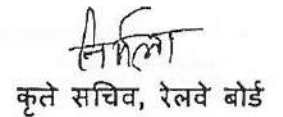 निर्मला
कृते सचिव, रेलवे बोर्ड